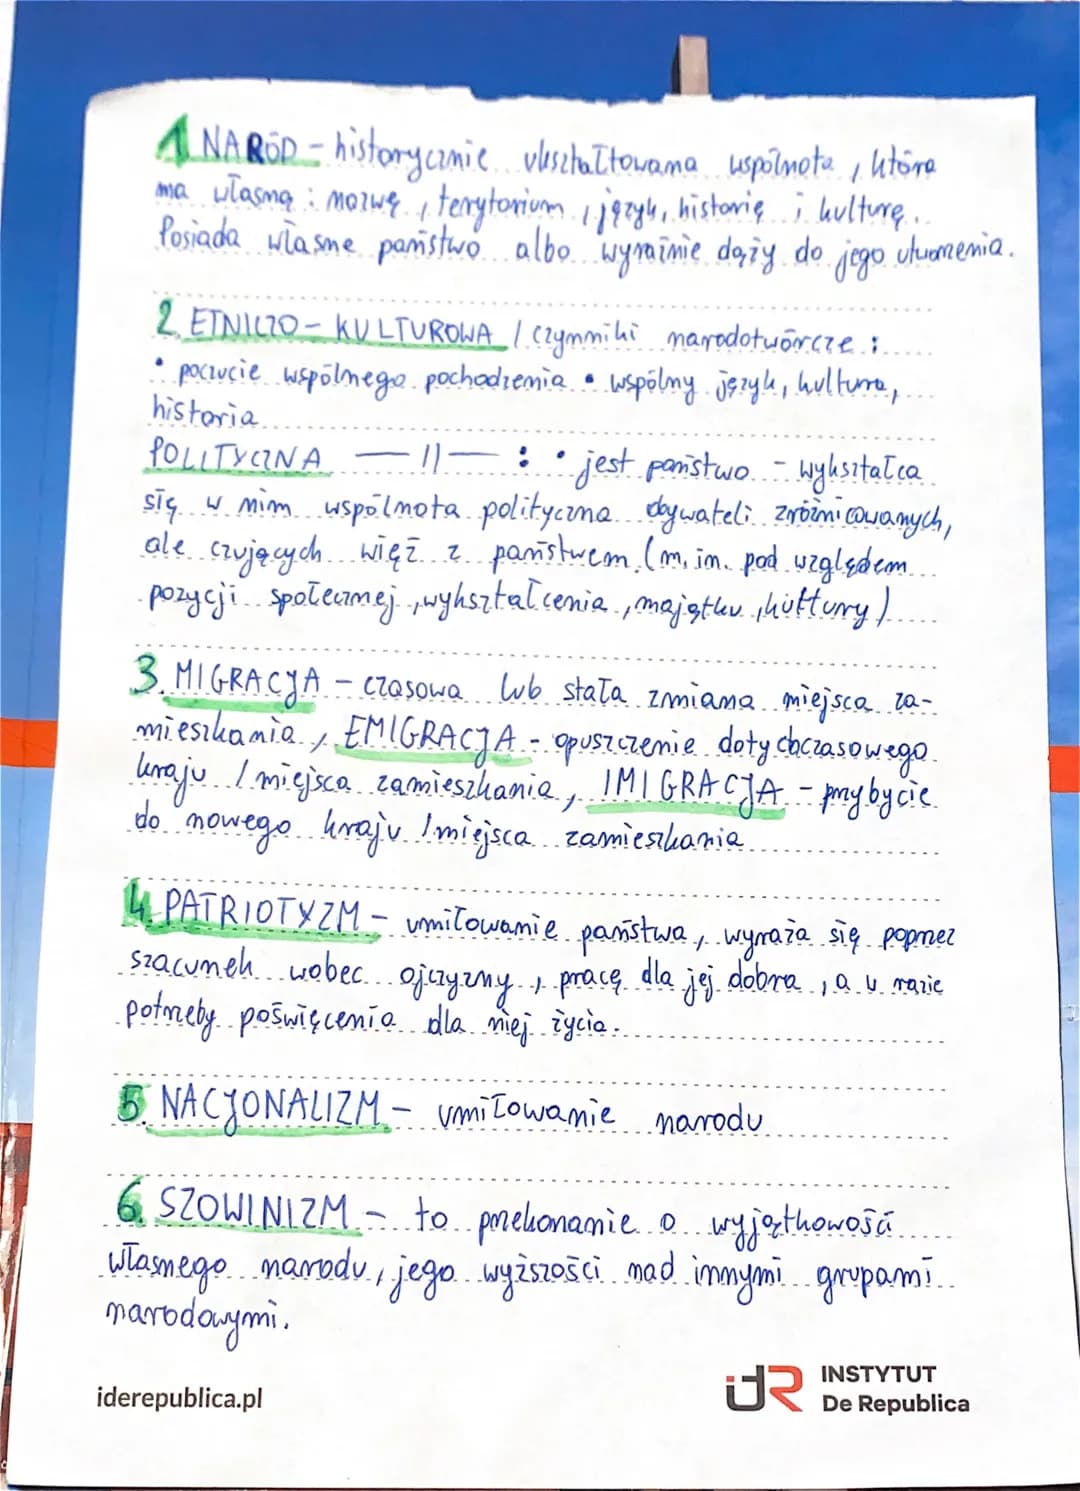 1. NARÓD - historycznie ukształtowana wspólnota, która
ma własną: nazwę, terytorium, język, historię i kulturę.
Posiada własne państwo albo wyraźnie dąży do jego utworzenia.
2. ETNICZO - KULTUROWA / czynniki narodotwórcze:
• poczucie wspólnego pochodzenia • wspólny język, kultura,
historia
POLITYCZNA —||— : • jest państwo - wykształca
się w nim wspólnota polityczna obywateli zróżnicowanych,
ale czujących więź z państwem (m.in. pod względem
pozycji społecznej, wykształcenia, majątku, kultury)
3. MIGRACJA - czasowa lub stała zmiana miejsca za-
mieszkania, EMIGRACJA - opuszczenie dotychczasowego
kraju / miejsca zamieszkania, IMIGRACJA - przybycie
do nowego kraju / miejsca zamieszkania
4. PATRIOTYZM - umiłowanie państwa, wyraża się poprzez
szacunek wobec ojczyzny, pracę dla jej dobra, a w razie
potrzeby poświęcenia dla niej życia.
5. NACJONALIZM - umiłowanie narodu
6. SZOWINIZM - to przekonanie o wyjątkowości
własnego narodu, jego wyższości nad innymi grupami
narodowymi.
iderepublica.pl
idR INSTYTUT
De Republica